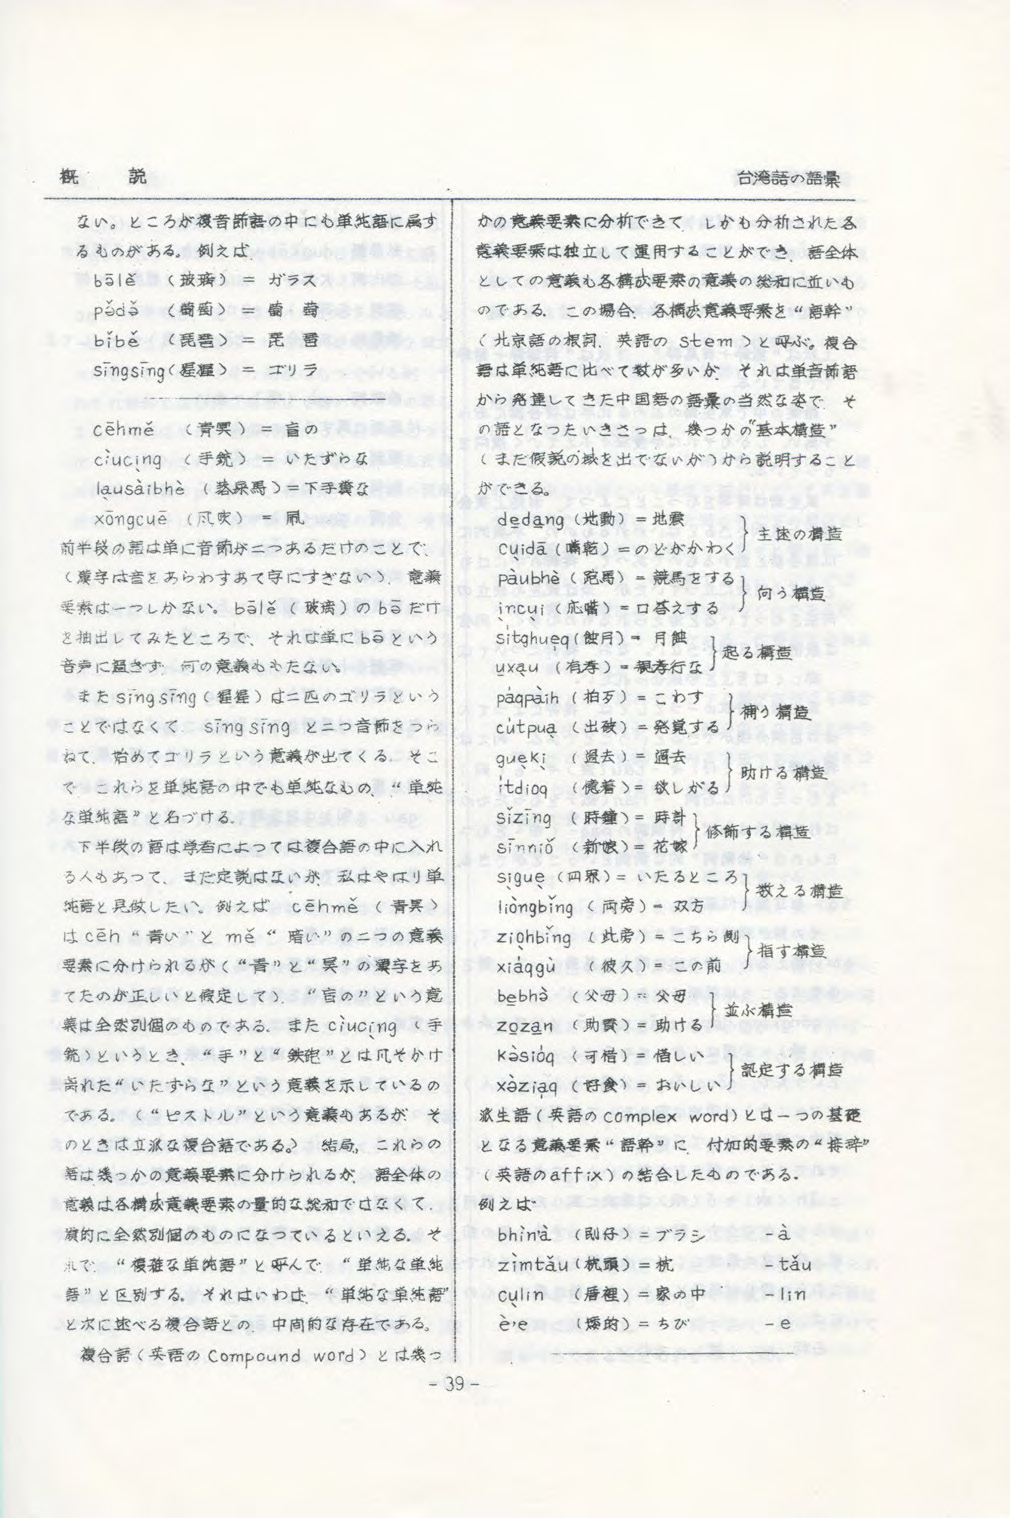 概　説
台湾語の語彙
ない。ところが複音節語の中にも単純語に属す
るものがある。例えば、
bōlě （玻璃） = ガラス
pǒdǒ （葡萄） = 葡　萄
bǐbě （琵琶） = 琵　琶
sīngsīng（猩猩） = ゴリラ
cēhmě （青冥） = 盲の
cìucịng （手銃） = いたずらな
lạusàibhè （落屎馬）=下手糞な
xōngcuē （风吹） = 凧
前半段の語は単に音節が二つあるだけのことで、
（漢字は音をあらわすあて字にすぎない）、意義
要素は一つしかない。bōlě（玻璃）の bō だけ
を抽出してみたところで、それは単に bō という
音声に過ぎず、何の意義ももたない。
また sīngsīng（猩猩）は二匹のゴリラという
ことではなくて、sīng sīng と二つ音節をつら
ねて、始めてゴリラという意義が出てくる。そこ
で、これらを単純語の中でも単純なもの、“単純
な単純語”と名づける。
下半段の語は学者によっては複合語の中に入れ
る人もあって、まだ定説はないが、私はやはり単
純語と見做したい。例えば、cēhmě （青冥）
は cēh “青い”と mě “暗い”の二つの意義
要素に分けられるが（“青”と“冥”の漢字をあ
てたのが正しいと仮定して）、“盲の”という意
義は全然別個のものである。また cìucịng （手
銃）というとき、“手”と“鉄砲”とは凡そかけ
离れた“いたずらな”という意義を示しているの
である。（“ピストル”という意義もあるが、そ
のときは立派な複合語である。） 結局、これらの
語は幾つかの意義要素に分けられるが、語全体の
意義は各構成意義要素の量的な総和ではなくて、
質的に全然別個のものになつているといえる。そ
れで、“複雑な単純語”と呼んで、“単純な単純
語”と区別する。それはいわば、“単純な単純語”
と次に述べる複合語との、中間的な存在である。
複合語（英語の Compound word）とは幾つ
かの意義要素に分析できて、しかも分析された各
意義要素は独立して運用することができ、語全体
としての意義も各構成要素の意義の総和に近いも
のである。この場合、各構成意義要素を“語幹”
（北京語の根詞、英語の stem）と呼ぶ。複合
語は単純語に比べて数が多いが、それは単音節語
から発達してきた中国語の語彙の当然な姿で、そ
の語となつたいきさつは、幾つかの“基本構造”
（まだ仮説の域を出でないが）から説明すること
ができる。
dẹdạng（地動）=地震
cùidā（嘴乾）=のどがかわく
主述の構造
pàubhè（跑馬）= 競馬をする
ìncui（応嘴）= 口答えする
向う構造
sịtghueq（蝕月）= 月蝕
ụxạu （有孝）= 親孝行な
起る構造
pàqpàih （拍歹）= こわす
cùtpuạ （出破）= 発覚する
補う構造
guèkì （過去）= 過去
ìtdioq （憶着）= 欲しがる
助ける構造
sǐzīng （時鐘）= 時計
sīnniǒ （新娘）= 花嫁
修飾する構造
sìgue （四界）= いたるところ
liòngbǐng （両旁）= 双方
数える構造
ziòhbǐng （此旁）= こちら側
xiàqgù （彼久）= この前
指す構造
bẹbhò （父母）= 父母
zọzạn （助賛）= 助ける
並ぶ構造
kòsióq （可惜）= 惜しい
xòziạq （好食）= おいしい
認定する構造
派生語（英語の complex word）とは一つの基礎
となる意義要素“語幹”に、付加的要素の“接辞”
（英語の affix）の結合したものである。
例えば
bhìn'à （刷仔）= ブラシ　-à
zìmtǎu（枕頭）= 枕　-tǎu
cùlin （厝裡）= 家の中　-lin
è'e （矮的）= ちび　-e
- 39 -